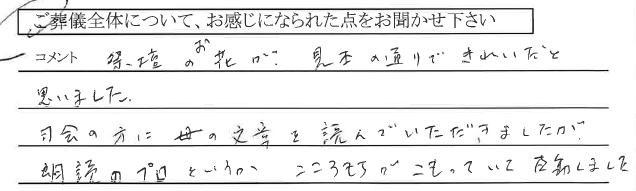 ご葬儀全体について、お感じになられた点をお聞かせ下さい
コメント 祭壇のお花が見本の通りできれいだと
思いました。
司会の方に母の文章を読んでいただきましたが
朗読のプロというか こころもちがこもっていて感動しました